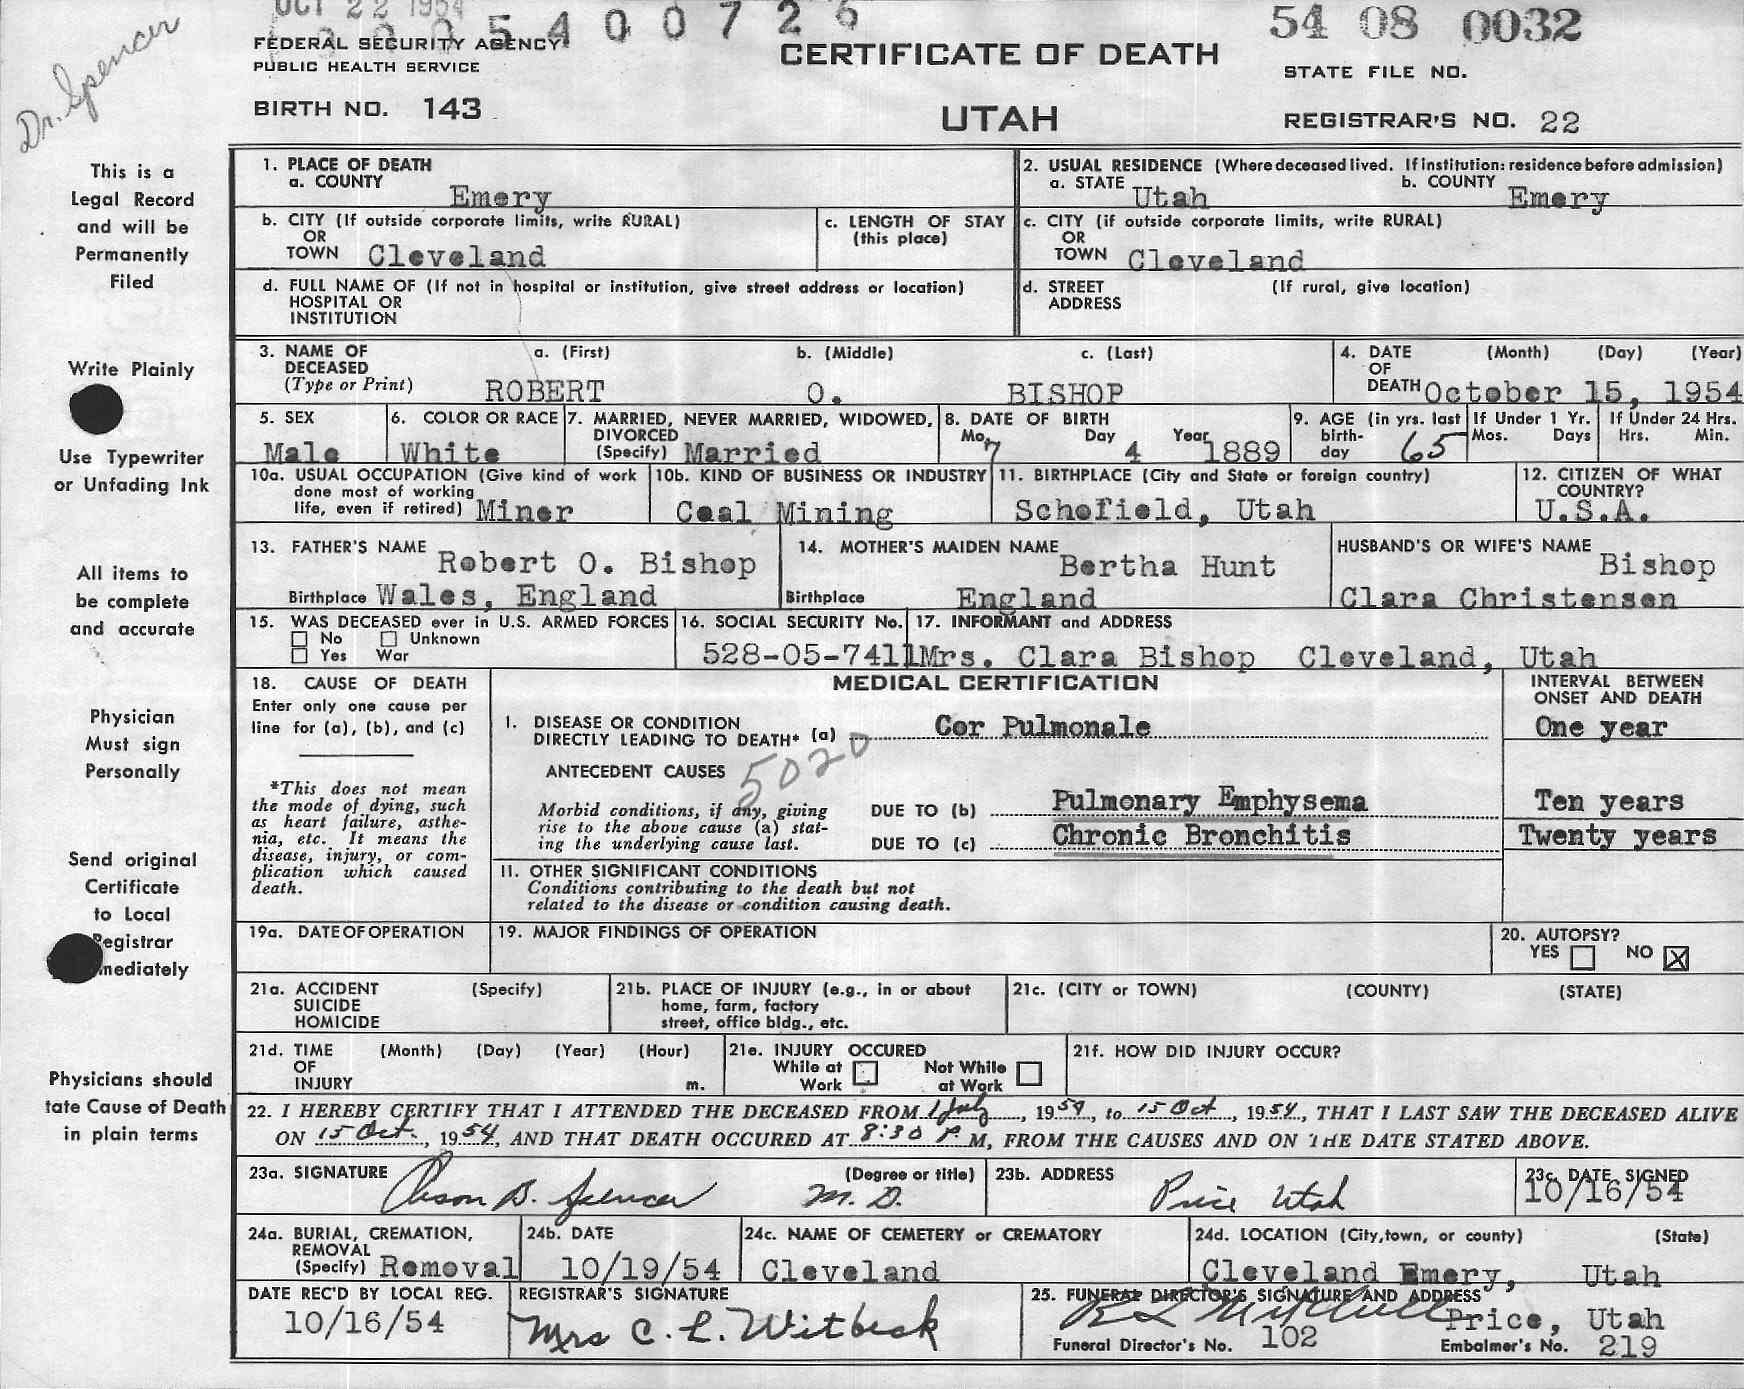 OCT 22 1954
5 4 0 0 7 2 6
54 08 0032
Dr. Spencer
FEDERAL SECURITY AGENCY
PUBLIC HEALTH SERVICE
CERTIFICATE OF DEATH
STATE FILE NO.
BIRTH NO. 143
UTAH
REGISTRAR'S NO. 22
This is a
Legal Record
and will be
Permanently
Filed
Write Plainly
Use Typewriter
or Unfading Ink
All items to
be complete
and accurate
Physician
Must sign
Personally
Send original
Certificate
to Local
Registrar
mediately
Physicians should
tate Cause of Death
in plain terms
1. PLACE OF DEATH
a. COUNTY Emery
2. USUAL RESIDENCE (Where deceased lived. If institution: residence before admission)
a. STATE Utah b. COUNTY Emery
b. CITY (If outside corporate limits, write RURAL)
OR
TOWN Cleveland
c. LENGTH OF STAY
(this place)
c. CITY (if outside corporate limits, write RURAL)
OR
TOWN Cleveland
d. FULL NAME OF (If not in hospital or institution, give street address or location)
HOSPITAL OR
INSTITUTION
d. STREET (If rural, give location)
ADDRESS
3. NAME OF a. (First) b. (Middle) c. (Last)
DECEASED
(Type or Print) ROBERT O. BISHOP
4. DATE (Month) (Day) (Year)
OF
DEATH October 15, 1954
5. SEX
Male
6. COLOR OR RACE
White
7. MARRIED, NEVER MARRIED, WIDOWED,
DIVORCED
(Specify) Married
8. DATE OF BIRTH
Mo. Day Year
7 4 1889
9. AGE (in yrs. last
birth-
day 65
If Under 1 Yr.
Mos. Days
If Under 24 Hrs.
Hrs. Min.
10a. USUAL OCCUPATION (Give kind of work
done most of working
life, even if retired) Miner
10b. KIND OF BUSINESS OR INDUSTRY
Coal Mining
11. BIRTHPLACE (City and State or foreign country)
Schofield, Utah
12. CITIZEN OF WHAT
COUNTRY?
U.S.A.
13. FATHER'S NAME Robert O. Bishop
Birthplace Wales, England
14. MOTHER'S MAIDEN NAME Bertha Hunt
Birthplace England
HUSBAND'S OR WIFE'S NAME Bishop
Clara Christensen
15. WAS DECEASED ever in U.S. ARMED FORCES
No Unknown
Yes War
16. SOCIAL SECURITY No.
528-05-7411
17. INFORMANT and ADDRESS
Mrs. Clara Bishop Cleveland, Utah
18. CAUSE OF DEATH
Enter only one cause per
line for (a), (b), and (c)
*This does not mean
the mode of dying, such
as heart failure, asthe-
nia, etc. It means the
disease, injury, or com-
plication which caused
death.
MEDICAL CERTIFICATION
INTERVAL BETWEEN
ONSET AND DEATH
I. DISEASE OR CONDITION
DIRECTLY LEADING TO DEATH* (a) Cor Pulmonale One year
5020
ANTECEDENT CAUSES
Morbid conditions, if any, giving
rise to the above cause (a) stat-
ing the underlying cause last.
DUE TO (b) Pulmonary Emphysema Ten years
DUE TO (c) Chronic Bronchitis Twenty years
II. OTHER SIGNIFICANT CONDITIONS
Conditions contributing to the death but not
related to the disease or condition causing death.
19a. DATE OF OPERATION
19. MAJOR FINDINGS OF OPERATION
20. AUTOPSY?
YES NO X
21a. ACCIDENT (Specify)
SUICIDE
HOMICIDE
21b. PLACE OF INJURY (e.g., in or about
home, farm, factory
street, office bldg., etc.
21c. (CITY or TOWN) (COUNTY) (STATE)
21d. TIME (Month) (Day) (Year) (Hour)
OF
INJURY m.
21e. INJURY OCCURED
While at Not While
Work at Work
21f. HOW DID INJURY OCCUR?
22. I HEREBY CERTIFY THAT I ATTENDED THE DECEASED FROM 1 July, 1954, to 15 Oct, 1954, THAT I LAST SAW THE DECEASED ALIVE
ON 15 Oct., 1954, AND THAT DEATH OCCURED AT 8:30 P.M, FROM THE CAUSES AND ON THE DATE STATED ABOVE.
23a. SIGNATURE (Degree or title)
B. Spencer M.D.
23b. ADDRESS
Price Utah
23c. DATE SIGNED
10/16/54
24a. BURIAL, CREMATION,
REMOVAL
(Specify) Removal
24b. DATE
10/19/54
24c. NAME OF CEMETERY or CREMATORY
Cleveland
24d. LOCATION (City, town, or county) (State)
Cleveland Emery, Utah
DATE REC'D BY LOCAL REG.
10/16/54
REGISTRAR'S SIGNATURE
Mrs C. L. Witbeck
25. FUNERAL DIRECTOR'S SIGNATURE AND ADDRESS
Price, Utah
Funeral Director's No. 102 Embalmer's No. 219